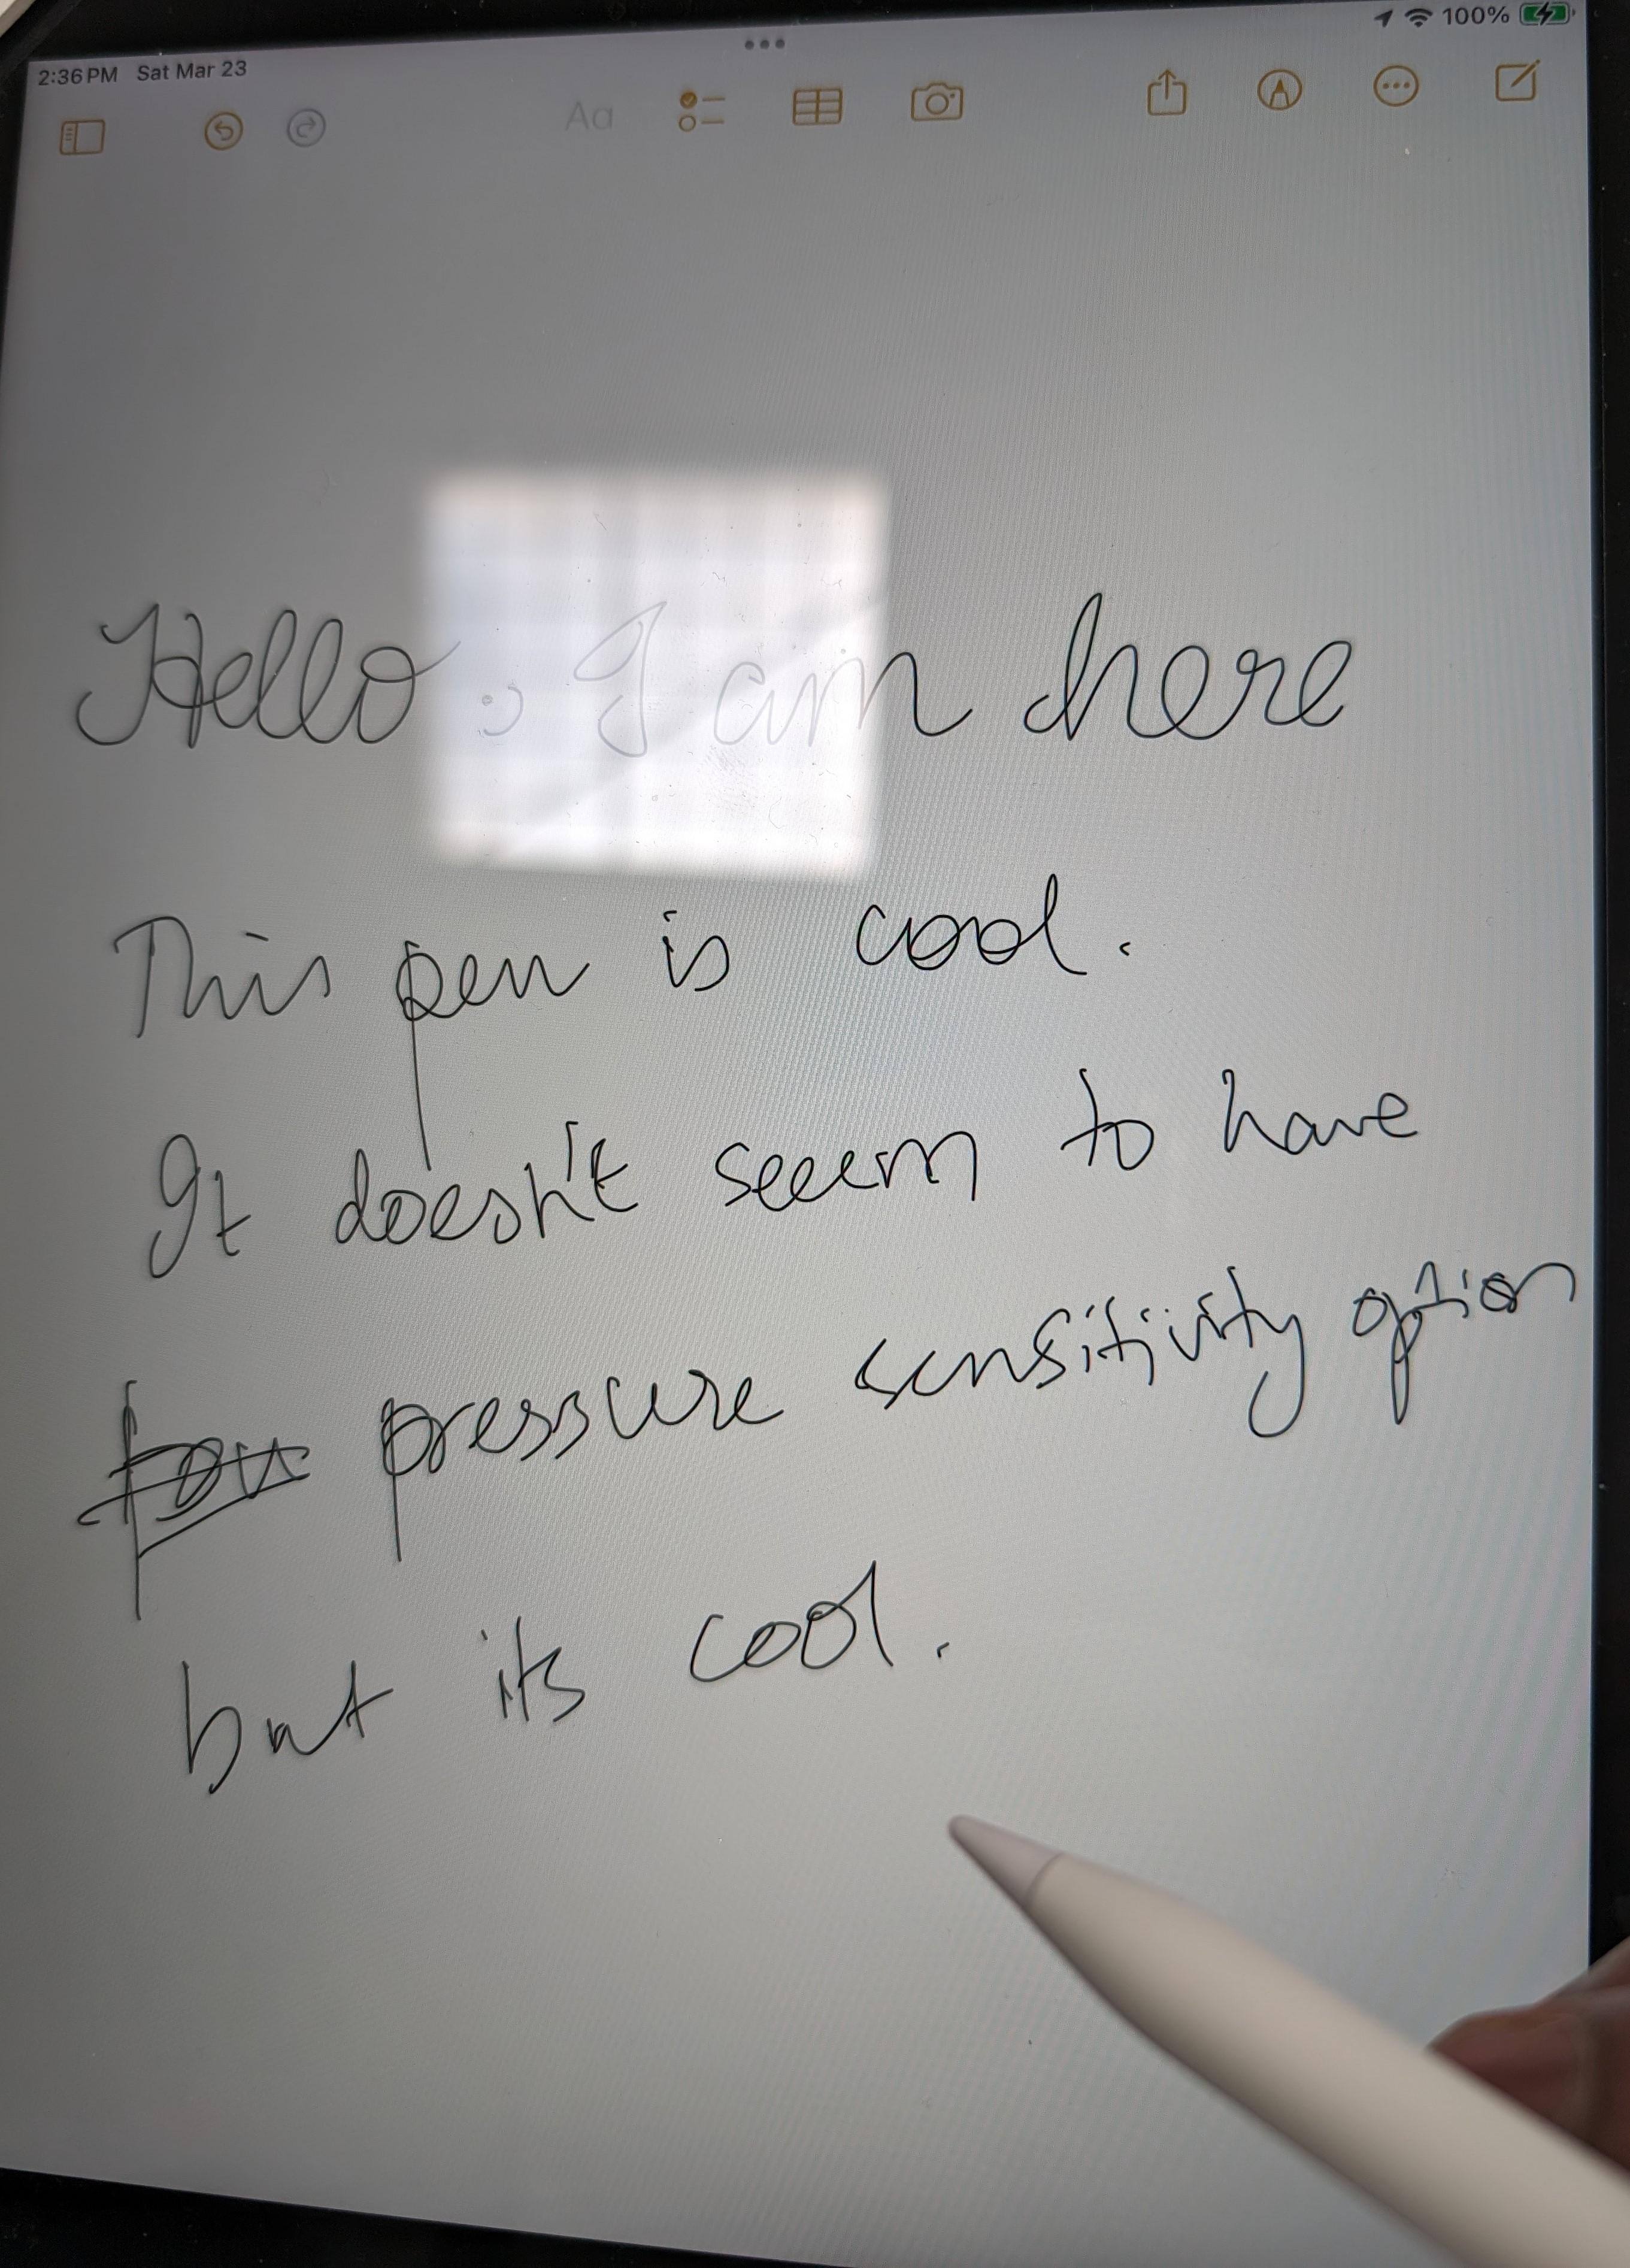 2:36 PM Sat Mar 23 100%
Aa
Hello, I am here
This pen is cool.
It doesn't seem to have
pressure sensitivity option
but its cool.